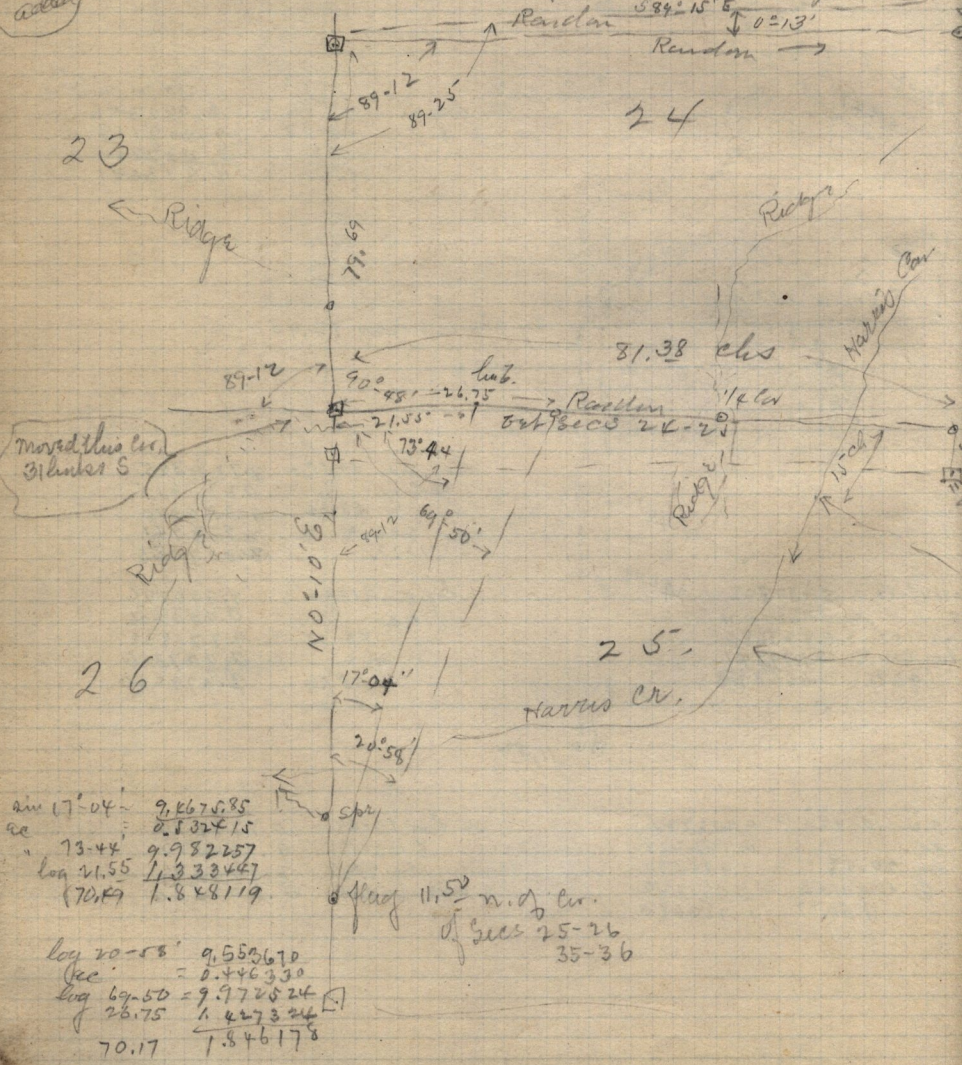 added
S 89°-15' E
Random
0°-13'
Random
89-12
89-25
24
23
Ridge
Ridge
79.69
Harris
81.38 chs
89-12
90°
48'
26.75
hub.
Random
1/4 Cor
21.55
Bet Secs 24-25
Moved this Cor.
31 links S
73-44
15 ch
Ridge
69°-50'
89-12
Ridge
N0°-10'E
25
26
17°-04'
Harris Cr.
20°-58'
sin 17°-04' 9.467585
ac 0.532415
" 73-44' 9.982257
log 21.55 1.333447
70.49 1.848119
spr
flag 11.50 n. of Cor.
of Secs 25-26
35-36
log 20-58' 9.553670
ac = 0.446330
log 69-50 = 9.972524
26.75 1.427324
70.17 1.846178